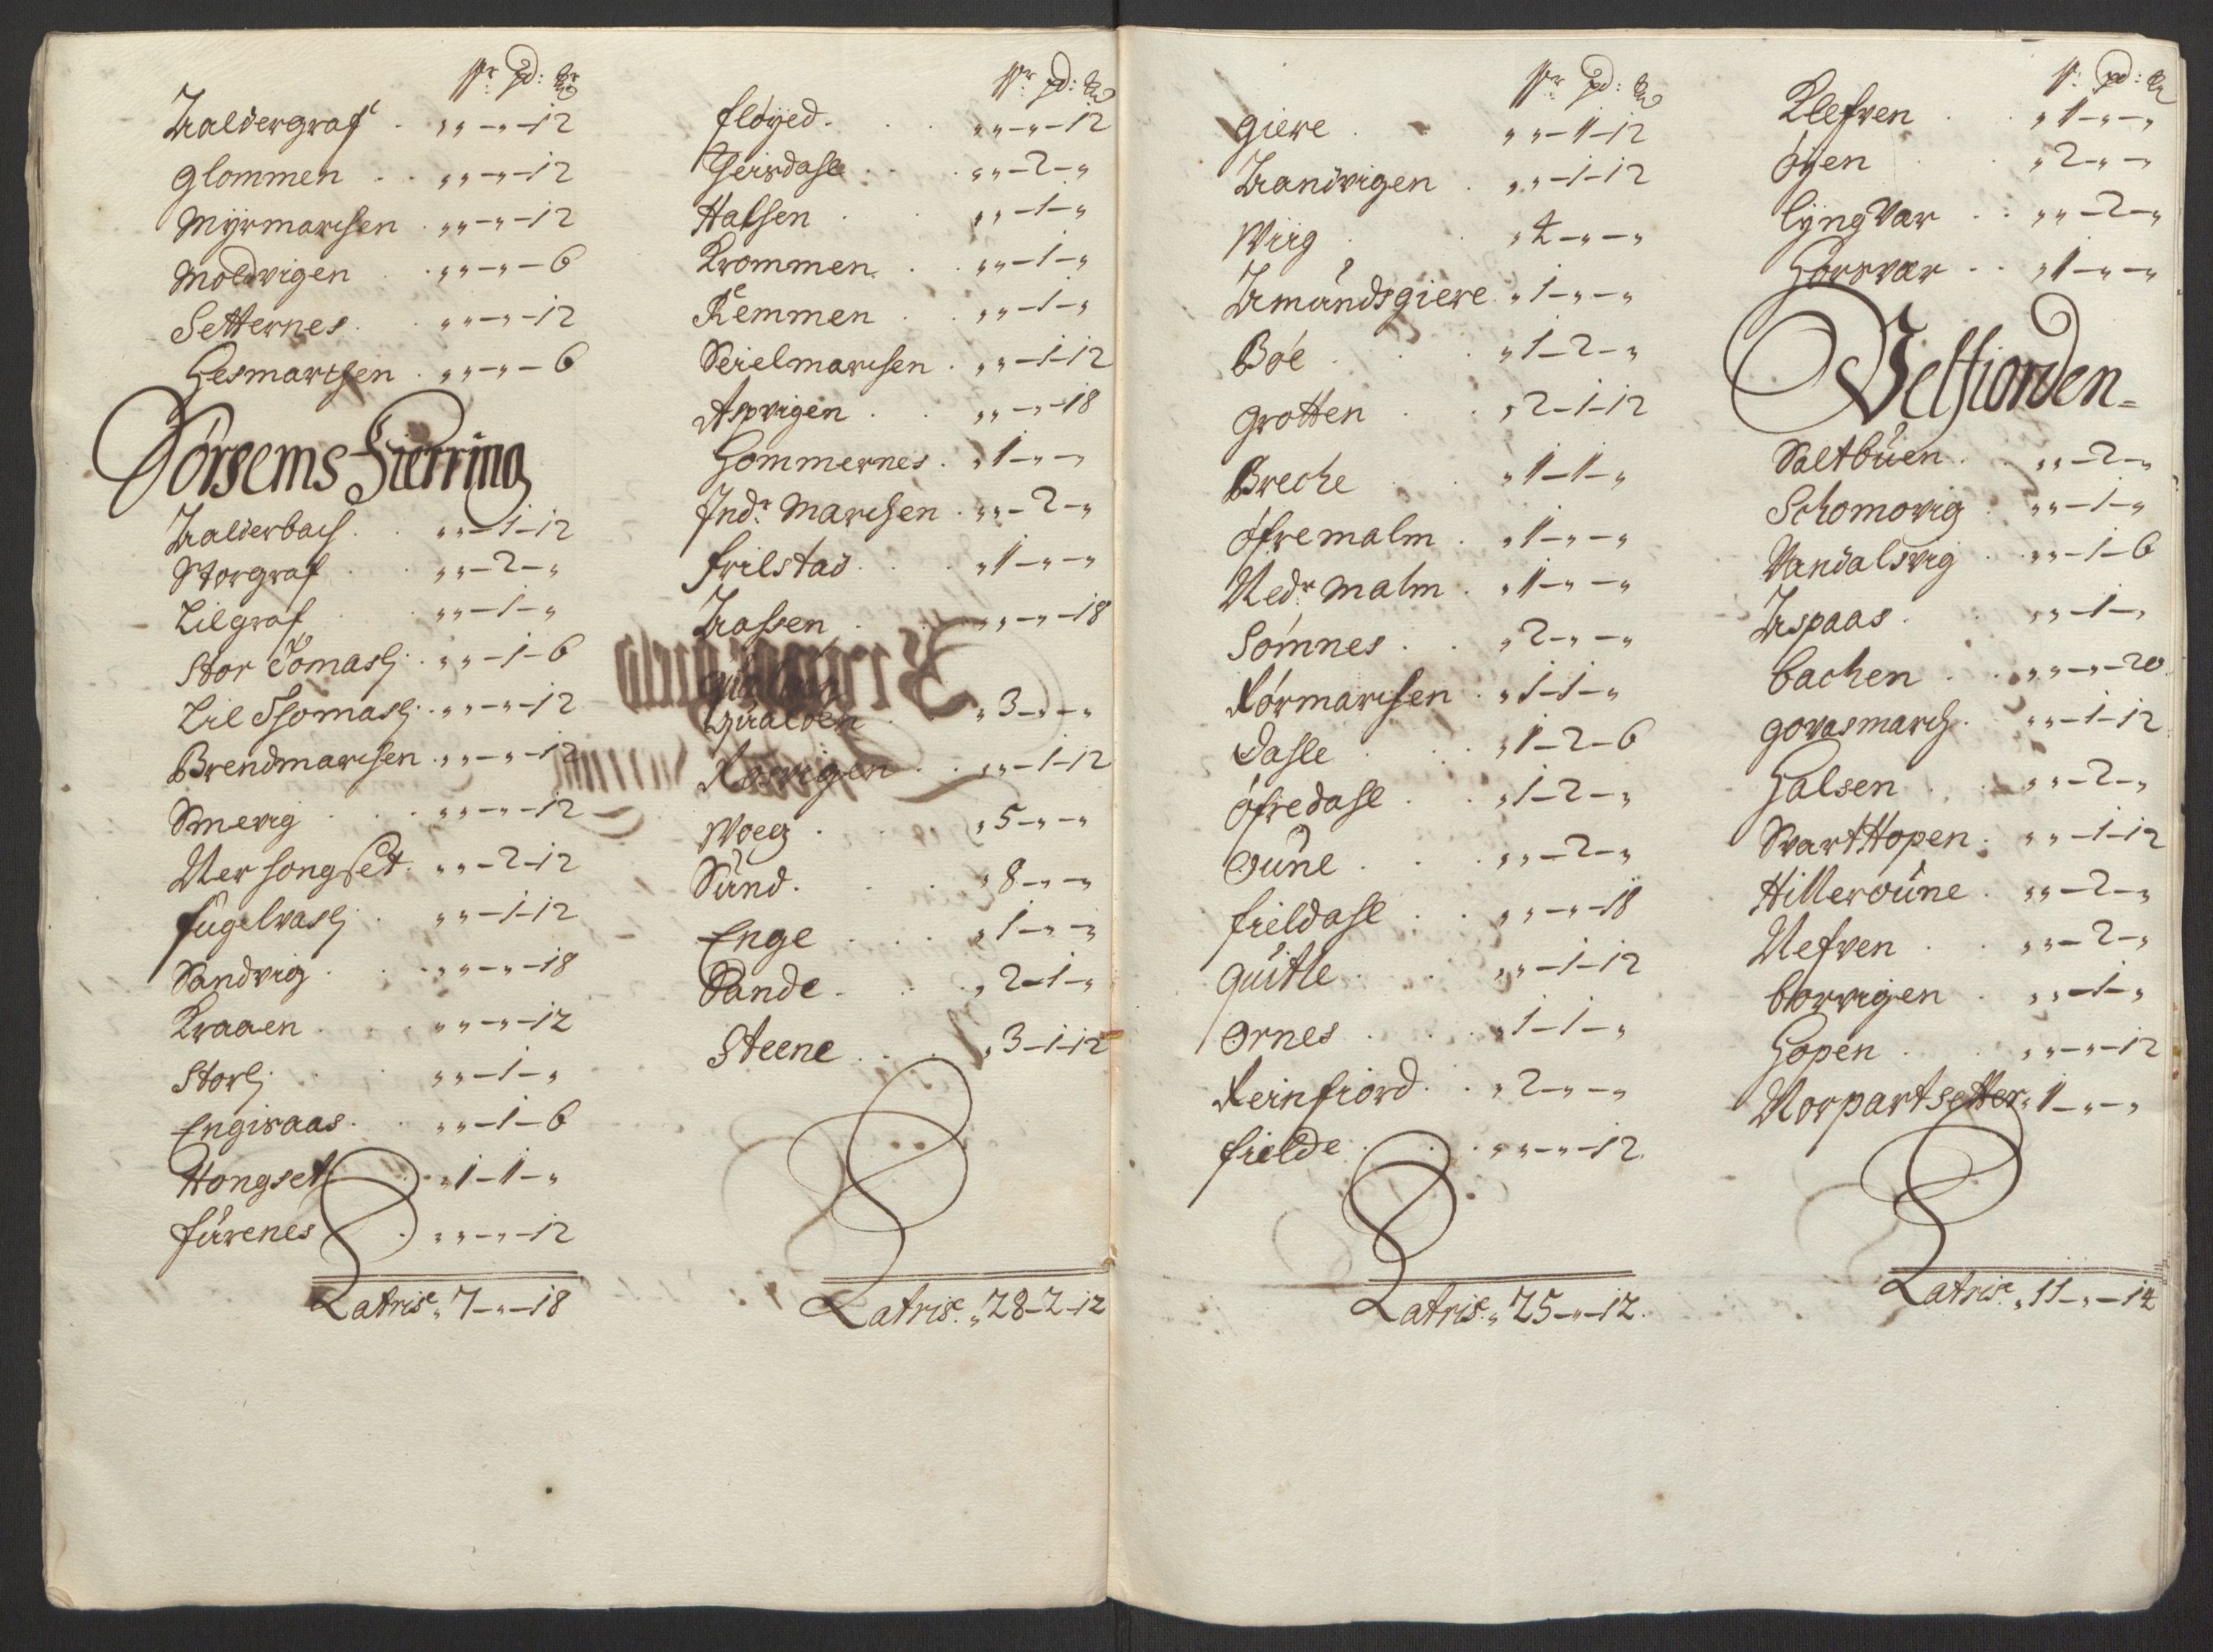 Zaldergraf . „ „ – „ – 12
Glommen . . „ „ – „ – 12
Myrmarchen . „ „ – „ – 12
Moldvigen . „ „ – „ – 6
Setternes . . „ „ – „ – 12
Hesmarchen . „ „ – „ – 6
Torgems Fierring
Zalderbach . . „ „ – 1 – 12
Storgraf . . „ „ – 2 – „
Lilgraf . „ „ – 1 – „
Stor Tomash . „ „ – 1 – 6
Lil Thomash . „ „ – „ – 12
Brendmarchen . „ „ – „ – 12
Smevig . . „ „ – „ – 12
Ner Hongset . „ „ – 2 – 12
Fugelvash . „ „ – 1 – 12
Sandvig . . „ „ – „ – 18
Kraaen . . „ „ – „ – 12
Storh . . „ „ – 1 – „
Engisaas . . „ „ – 1 – 6
Hongset . „ 1 – 1 – „
Furenes . „ „ – „ – 12
Latris „ 7 – „ – 18
Fløyed . . . „ „ – „ – 12
Heisdahl . . „ „ – 2 – „
Halsen . . „ „ – 1 – „
Krommen . . „ „ – 1 – „
Remmen . . „ „ – 1 – „
Seielmarchen . „ „ – 1 – 12
Aspvigen . . „ „ – „ – 18
Hommernes . „ 1 – „ – „
Indr Marchen . „ „ – 2 – „
Frilstad . . „ 1 – „ – „
Zassen . . „ „ – „ – 18
Qualden . „ 3 – „ – „
. . „ „ – 1 – 12
Woeg . . „ 5 – „ – „
Sund . . „ 8 – „ – „
Enge . . . „ 1 – „ – „
Sande . . „ 2 – 1 – „
Steene . . „ 3 – 1 – 12
Latris „ 28 – 2 – 12
Giere . . „ „ – 1 – 12
Zandvigen . „ „ – 1 – 12
Wiig . . „ 4 – „ – „
Zmundsgiere . „ 1 – „ – „
Bøe . . „ 1 – 2 – „
Grotten . . „ 2 – 1 – 12
Breche . . „ 1 – 1 – „
Øfremalm . „ 1 – „ – „
Nedr Malm . „ 1 – „ – „
Sømnes . . „ 2 – „ – „
Rørmarchen . „ 1 – 1 – „
Dahle . . „ 1 – 2 – 6
Øfredahl . . „ 1 – 2 – „
Oune . . . „ „ – 2 – „
Fieldahl . . „ „ – „ – 18
Quitle . . „ „ – 1 – 12
Ornes . . . „ 1 – 1 – „
Reinfiord . . „ 2 – „ – „
Fielde . . . „ „ – „ – 12
Latris „ 25 – „ – 12
Klefven . . „ 1 – „ – „
Øyen . . „ 2 – „ – „
Lyngvar . . „ „ – 2 – „
Horsvær . . „ 1 – „ – „
Velfiorden
Saltbuen . „ „ – 2 – „
Schomovig . „ „ – 1 – „
Vandalsvig . „ „ – 1 – 6
Zspaas . . „ „ – 1 – „
Bachen . . „ „ – „ – 20
Govasmarch . „ „ – 1 – 12
Halsen . . „ „ – 2 – „
Svarthopen . „ „ – 1 – 12
Hilleroune . „ „ – 2 – „
Nefven . . „ „ – 2 – „
Borvigen . „ „ – 1 – „
Hopen . . „ „ – „ – 12
Norpartsetter „ 1 – „ – „
Latris „ 11 – „ – 14